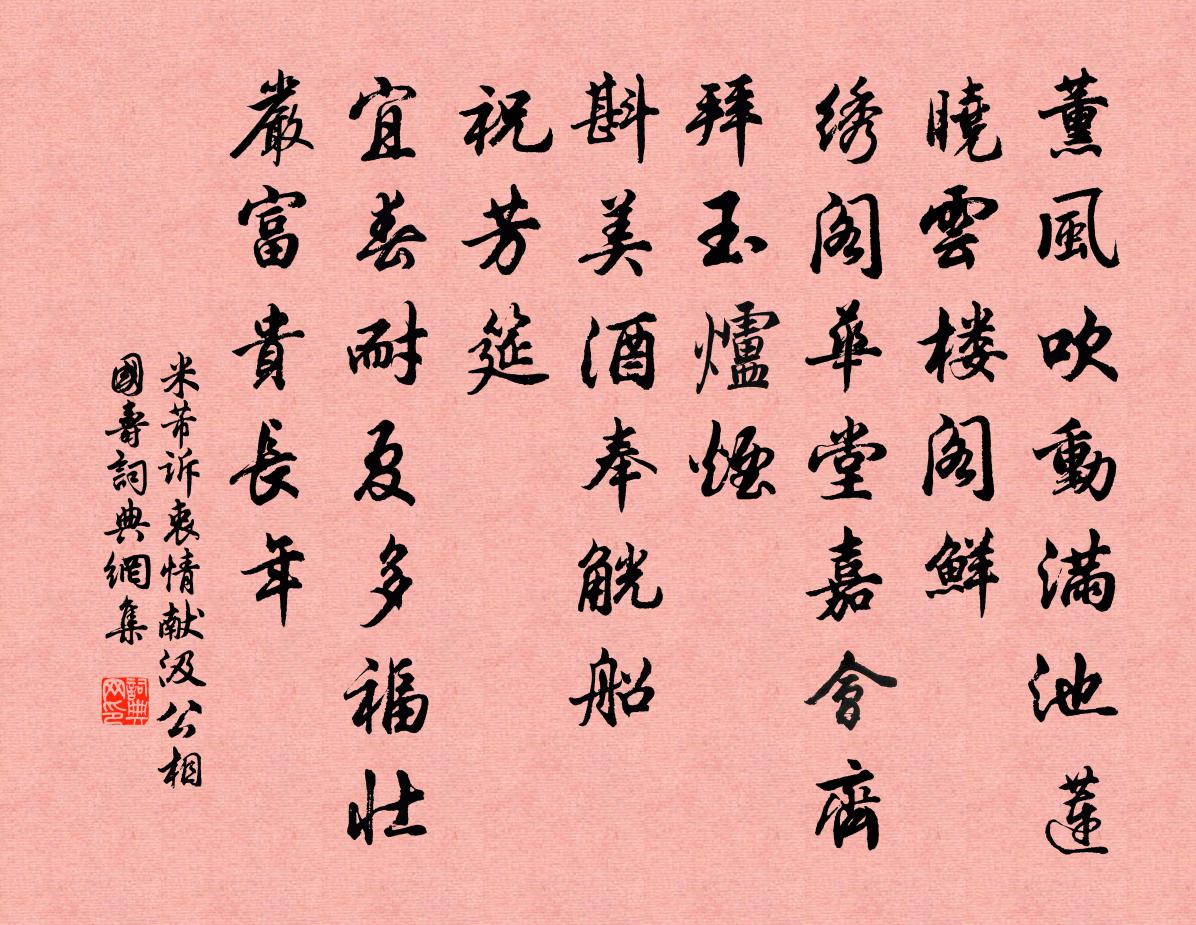 薰風吹動滿池蓮
曉雲楼阁鮮
绣阁華堂嘉會齊
拜玉爐煙
斟美酒奉觥船
祝芳筵
宜春耐夏多福壯
嚴富貴長年
米芾诉衷情献汲公相
國壽詞典網集
詞典网印